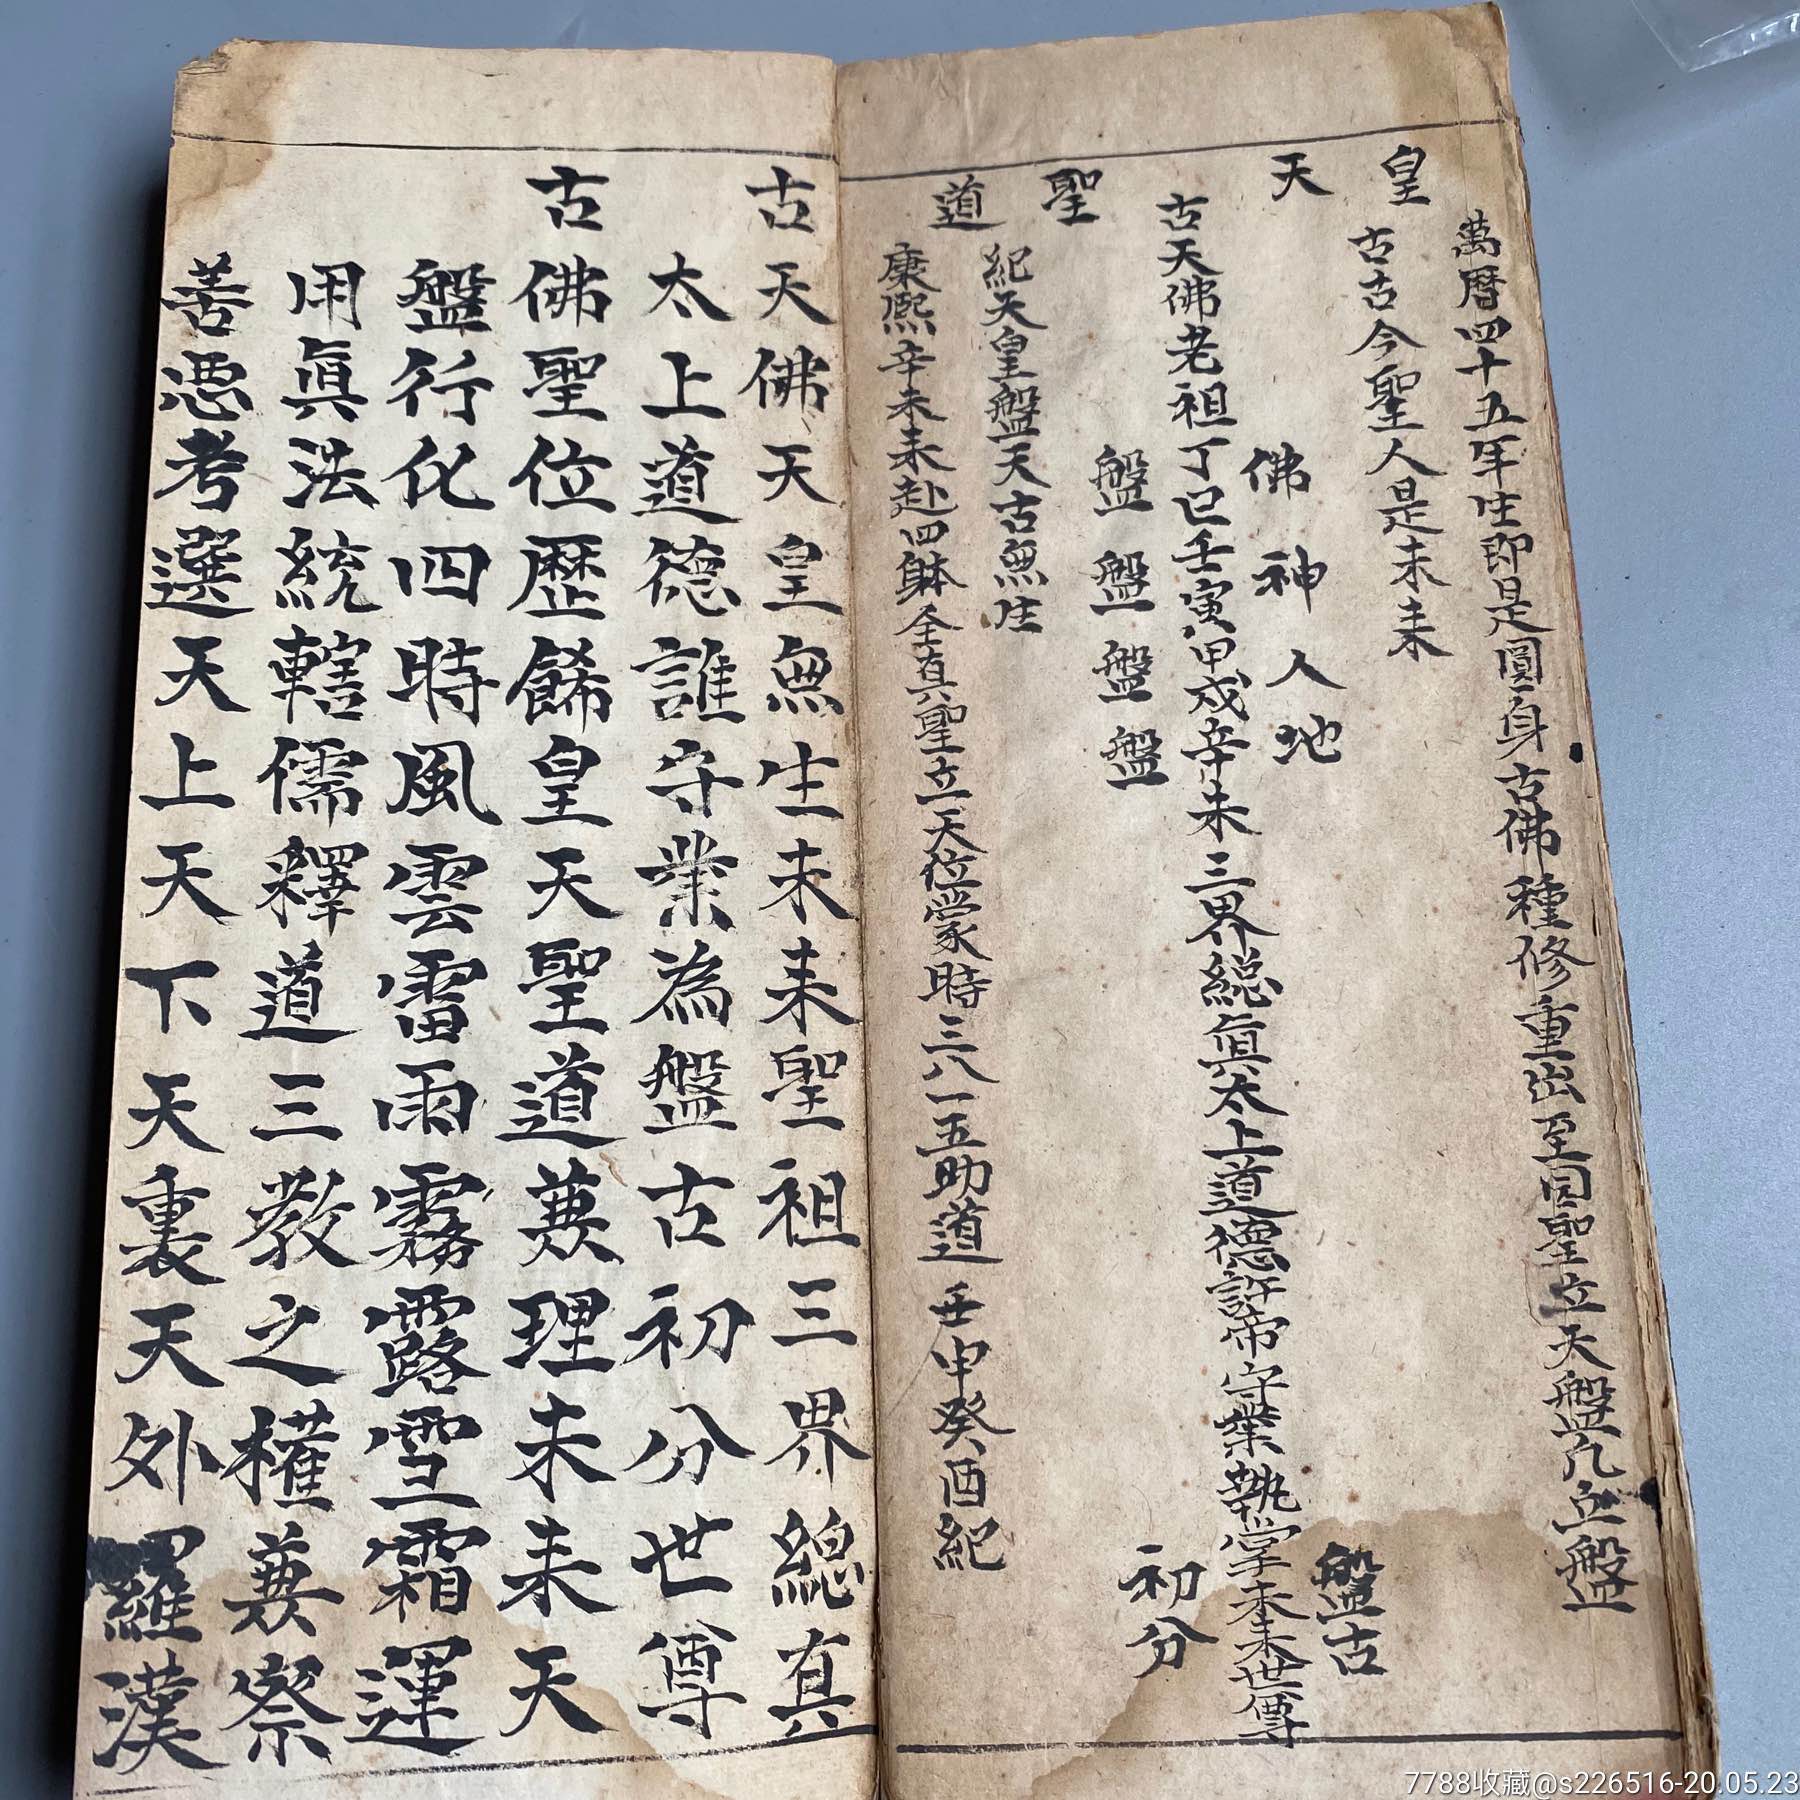 萬曆四十五年生即是圓身古佛種修重出至囩聖立天盤凡立盤
皇
古古今聖人是未耒
盤古
天
佛神人地
古天佛老祖丁巳壬寅甲戍辛未三界総眞太上道德許帝守業執掌未耒世尊
初分
盤盤盤盤
聖
紀天皇盤天古無生
道
康熙辛未耒赴四躰全真聖立天位蒙時三八一五助道壬申癸酉紀
古天佛天皇無生未耒聖祖三界総真
太上道德誰守業為盤古初分世尊
古佛聖位歴餙皇天聖道兼理未耒天
盤行化四時風雲雷雨霧露雪霜運
用眞法統轄儒釋道三教之權兼察
善惡考選天上天下天裏天外羅漢
7788收藏@s226516-20.05.23